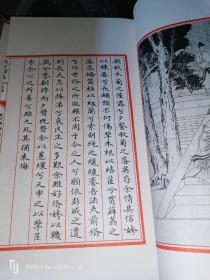 朝飲木蘭之墜露兮夕餐秋菊之落英苟余情其信姱
以練要兮長顑頷亦何傷擥木根以結茝兮貫薜荔之
落蕊矯菌桂以紉蕙兮索胡繩之纚纚謇吾法夫前修
兮非世俗之所服雖不周於今之人兮願依彭咸之遺
則長太息以掩涕兮哀民生之多艱余雖好修姱以鞿
羈兮謇朝誶而夕替既替余以蕙纕兮又申之以攬茝
亦余心之所善兮雖九死其猶未悔